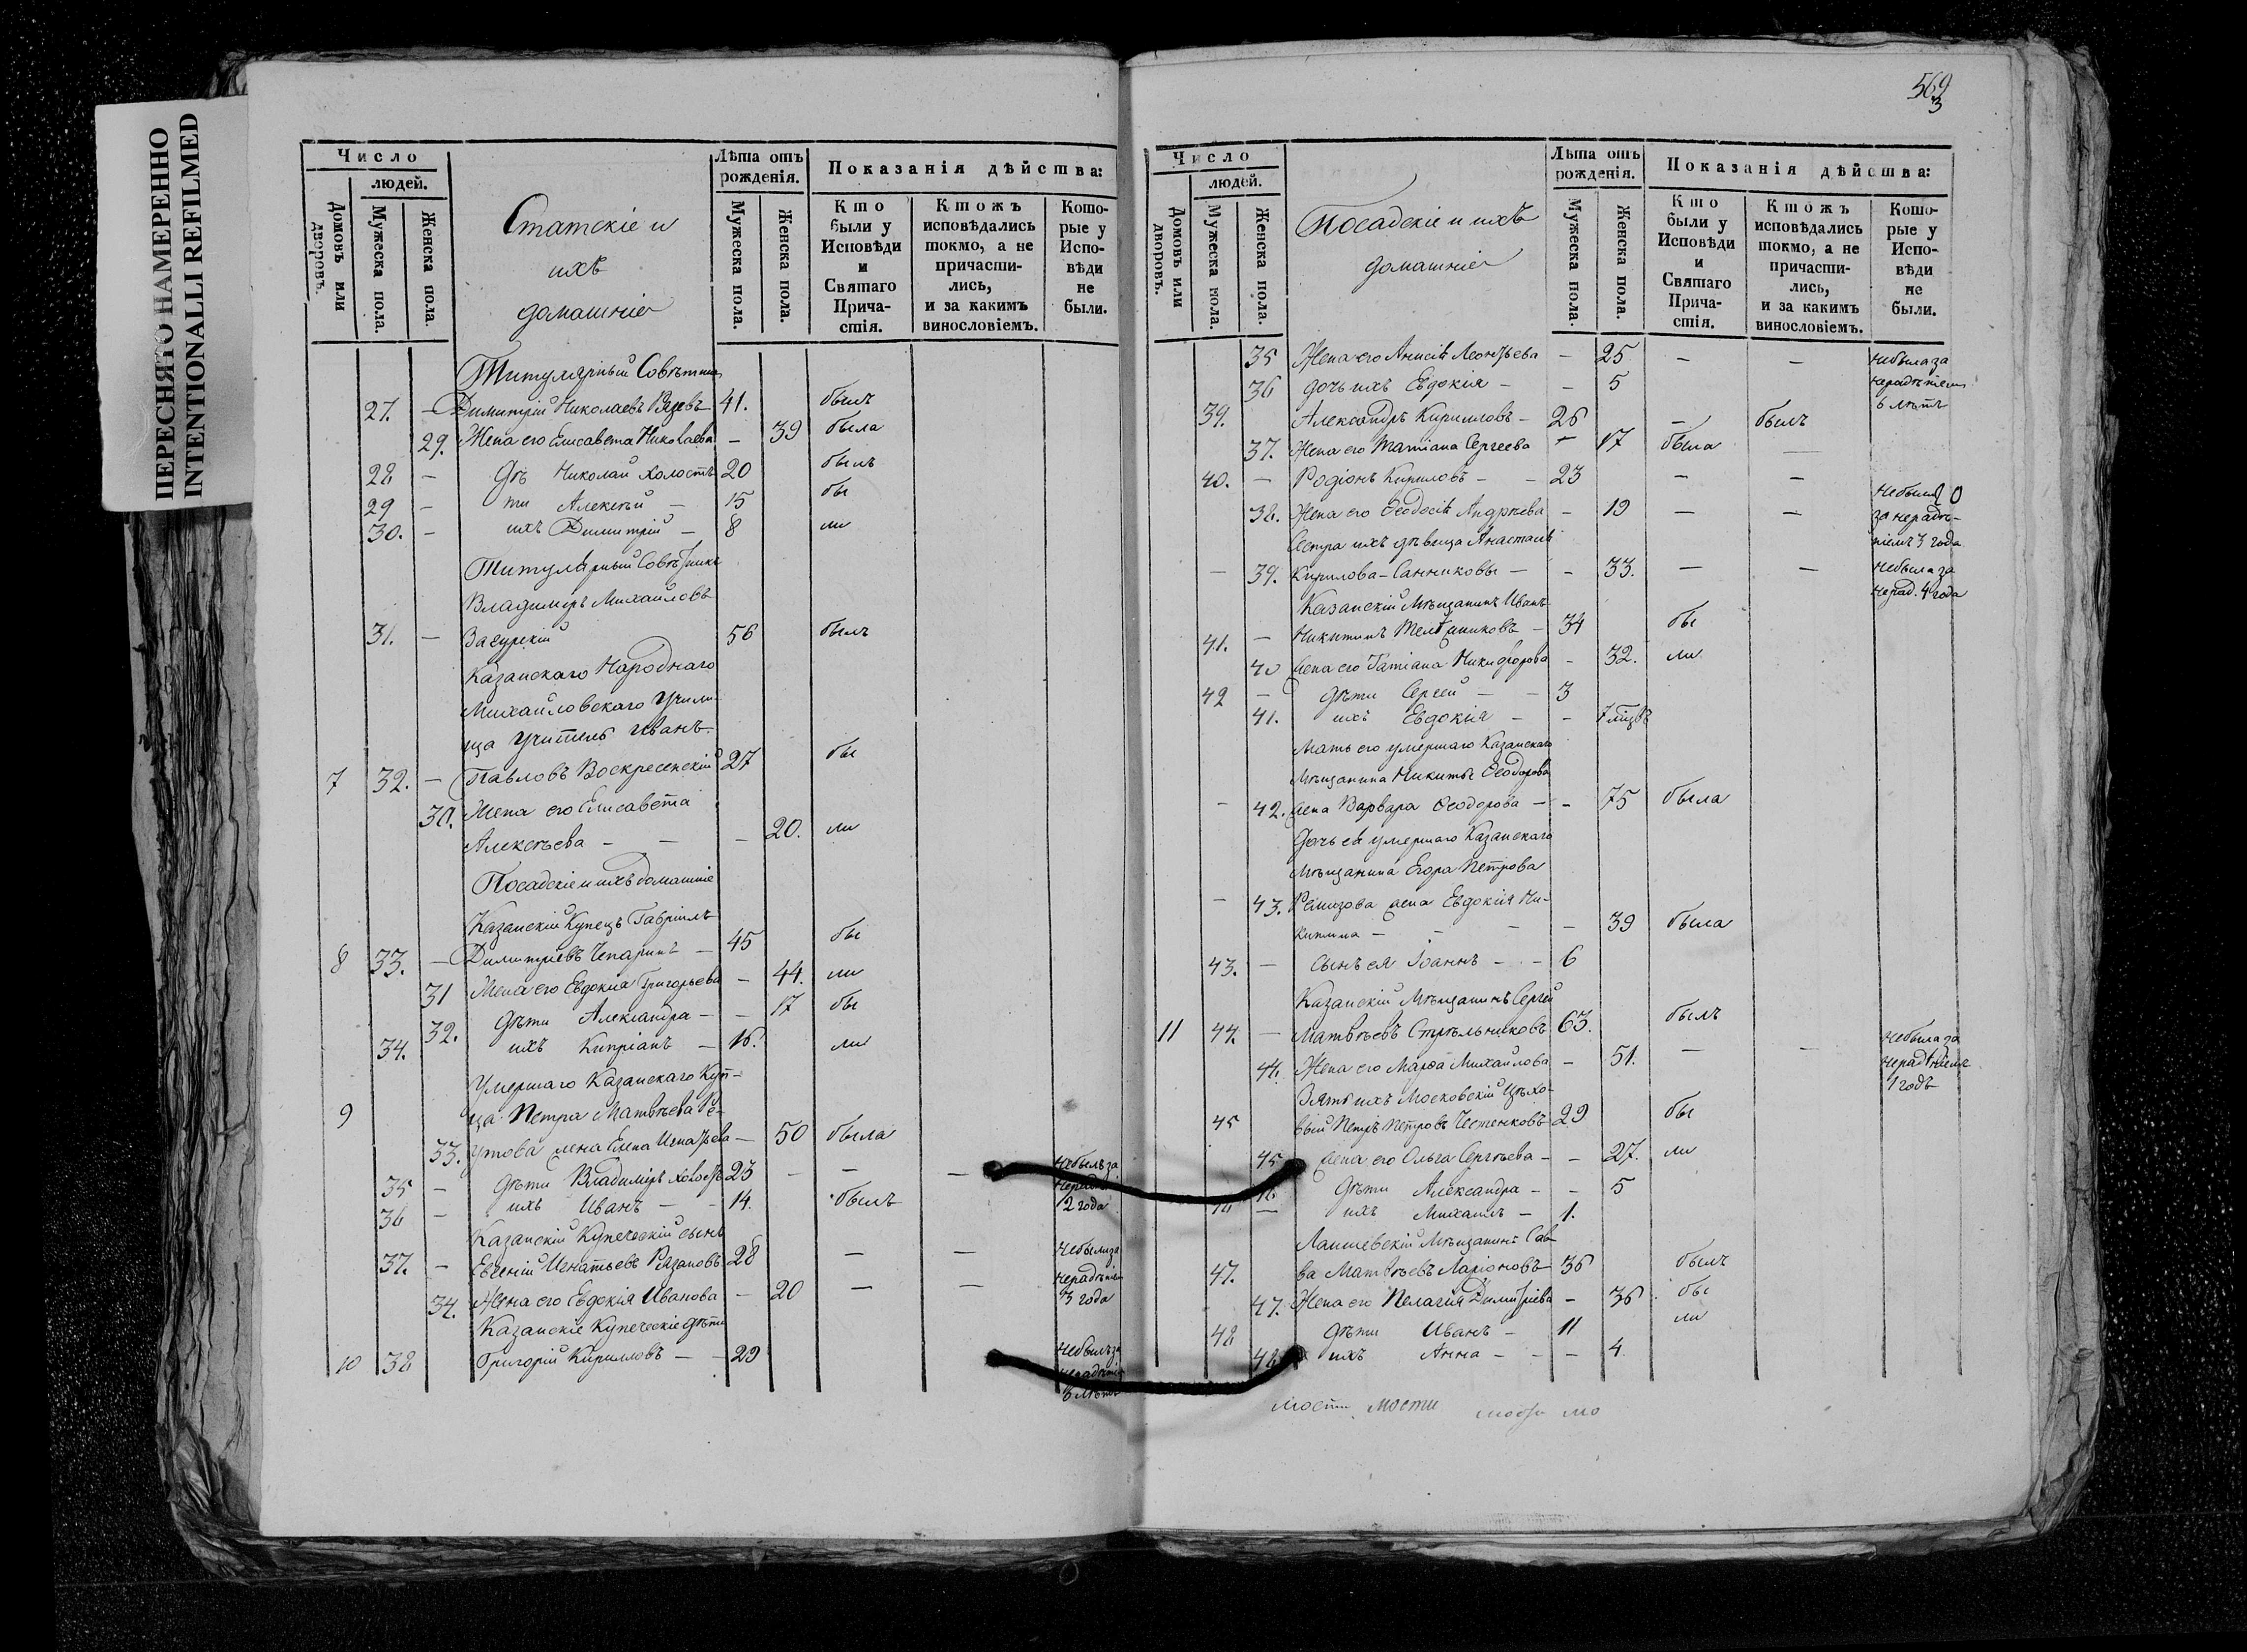 ПЕРЕСНЯТО НАМЕРЕННО
INTENTIONALLI REFILMED
Число
людей.
Домовъ или дворовъ.
Мужеска пола.
Женска пола.
Статскіе и
ихъ
домашніе
Лѣта отъ рожденія.
Мужеска пола.
Женска пола.
Показанія дѣйства:
Кто были у Исповѣди и Святаго Причастія.
Ктожъ исповѣдались токмо, а не причастились, и за какимъ винословіемъ.
Которые у Исповѣди не были.
Титулярный Совѣтникъ
27. — Димитрій Николаевъ 41. былъ
29. Жена его Елисавета Николаева — 39 была
28 — Дѣ Николай холостъ 20 былъ
29 — ти Алексѣй — 15 бы
30. — ихъ Димитрій — 8 ли
Титулярный Совѣтникъ
Владимиръ Михайловъ
31. — Засурскій 56 былъ
Казанскаго Народнаго
Михайловскаго Учили-
ща Учитель Иванъ
7 32. — Павловъ Воскресенскій 27 бы
30. Жена его Елисавета
Алексѣева — — — 20. ли
Посадскіе и ихъ домашніе
Казанскій Купецъ Гавріилъ
8 33. — Димитріевъ Чепаринъ — 45 бы
31 Жена его Евдокіа Григорьева — 44. ли
32. Дѣти Александра — — 17 бы
34. ихъ Кипріанъ — 16. ли
Умершаго Казанскаго Куп-
9 ца Петра Матвѣева Ре-
33. утова жена Елена Игнатьева — 50 была
35 — дѣти Владиміръ холостъ 23 — — — Небылъ за нерадѣ. 2 года
36 — ихъ Иванъ — — 14. былъ
Казанскій Купеческій сынъ
37. — Евгеній Игнатьевъ Рязановъ 28 — — Небыли за нерадѣніемъ 3 года
34. Жена его Евдокія Иванова — 20 — —
Казанскіе Купеческіе дѣти
10 38 Григорій Кирилловъ — — 29 Небылъ за нерадѣніе
569
3
Число
людей.
Домовъ или дворовъ.
Мужеска пола.
Женска пола.
Посадскіе и ихъ
домашніе
Лѣта отъ рожденія.
Мужеска пола.
Женска пола.
Показанія дѣйства:
Кто были у Исповѣди и Святаго Причастія.
Ктожъ исповѣдались токмо, а не причастились, и за какимъ винословіемъ.
Которые у Исповѣди не были.
35 Жена его Анисія Леонтьева — 25 — — Небыла за нерадѣніемъ 6 лѣтъ
36 дочь ихъ Евдокія — — 5
39. Александръ Кирилловъ — 26 — былъ
37. Жена его Татіана Сергеева — 17 была —
40. — Родіонъ Кириловъ — — 23 — — Небыли за нерадѣ-
38. Жена его Ѳеодосія Андрѣева — 19 — — ніемъ 3 года
Сестра ихъ дѣвица Анастасія
— 39. Кирилова — Санниковы — — 33. — — Небыла за нерад. 4 года
Казанскій Мѣщанинъ Иванъ
41. — Никитинъ — 34 бы
40 Жена его Татіана Никифорова — 32. ли
42 — дѣти Сергей — — 3
41. ихъ Евдокія — — 7 мѣцвъ
Мать его умершаго Казанскаго
Мѣщанина Никиты Ѳеодорова
— 42. жена Варвара Ѳеодорова — — 75 была
Дочь ея умершаго Казанскаго
Мѣщанина Егора Петрова
— 43. Ремизова жена Евдокія Ни-
китина — — — — 39 была
43. — Сынъ ея Іоаннъ — — 6
Казанскій Мѣщанинъ Сергей
11 44. — Матвѣевъ Стрѣльниковъ 63. былъ
44. Жена его Марѳа Михайлова — 51. — — Небыла за нерадѣніемъ 1 годъ
Зять ихъ Московскій Цѣхо-
45 вый Петръ Петровъ 29 бы
45 Жена его Ольга Сергѣева — — 27. ли
46 Дѣти Александра — — 5
46 — ихъ Михаилъ — 1.
Лаишевскій Мѣщанинъ Сав-
47. ва Матвѣевъ Ларіоновъ 36 былъ
47. Жена его Пелагія Димитріева — 36 бы
48 дѣти Иванъ — 11 ли
48 ихъ Анна — — — 4
мости мости мо